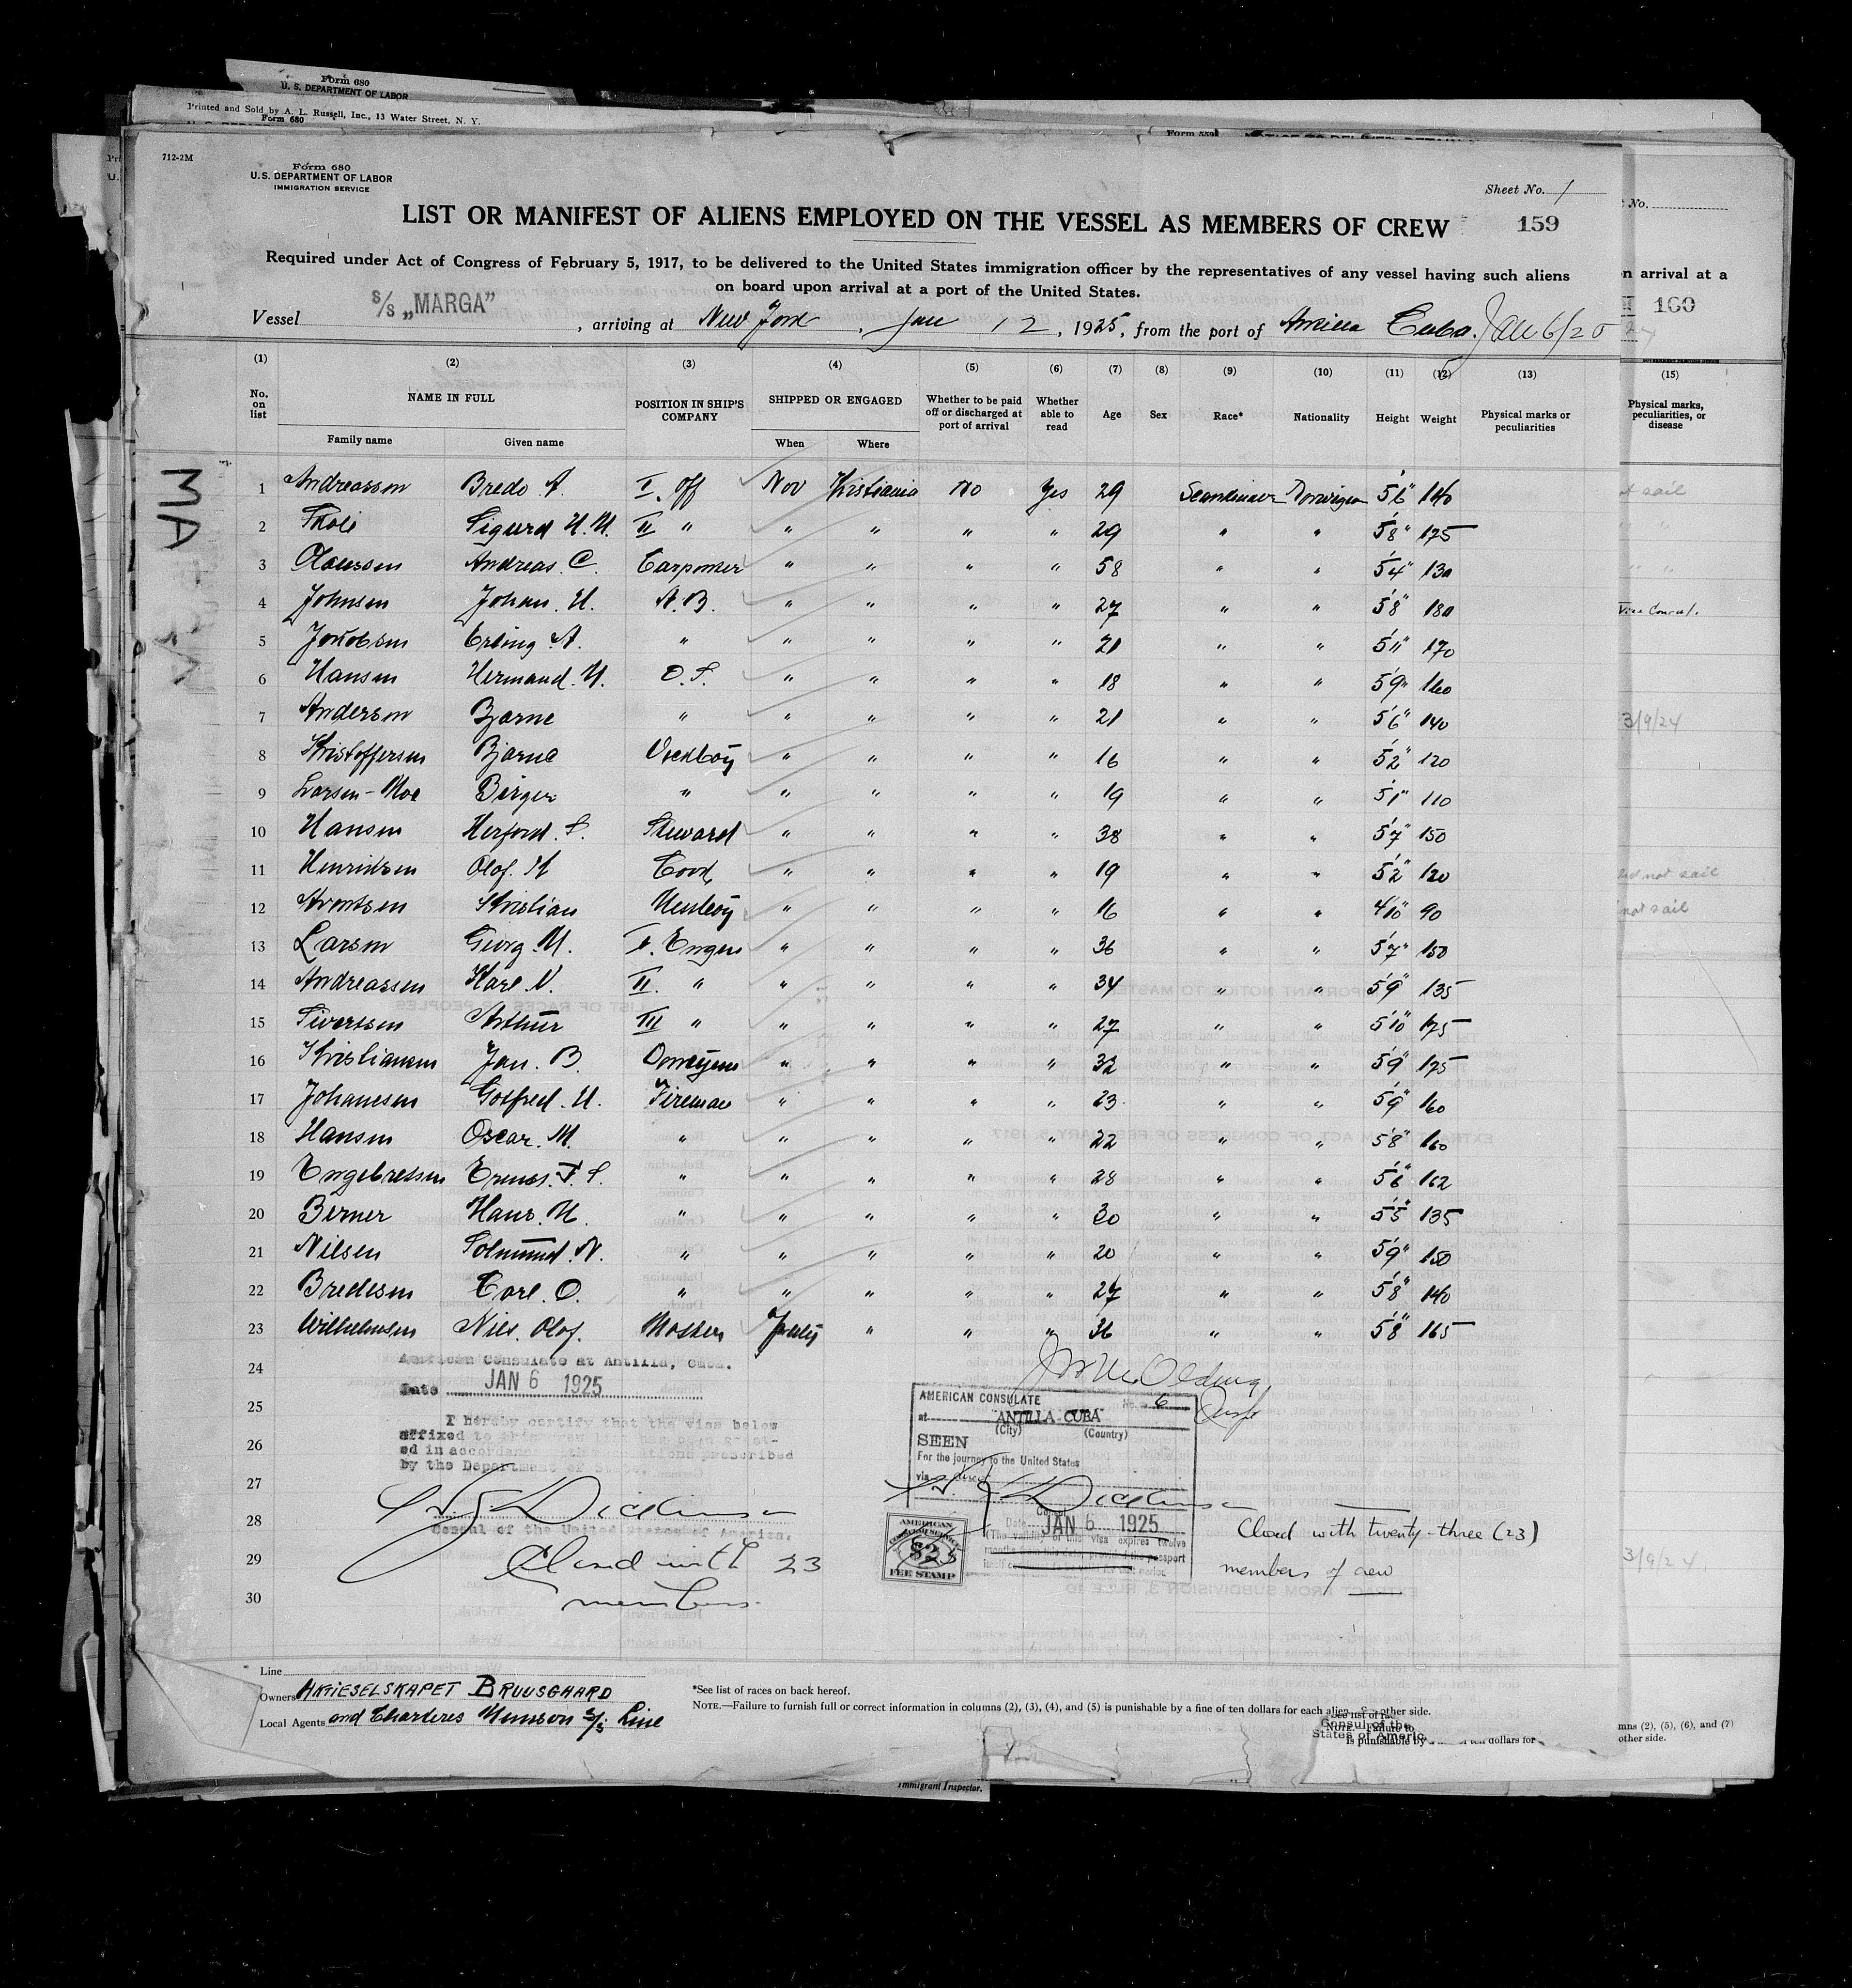 Form 680
U. S. DEPARTMENT OF LABOR
Printed and Sold by A. L. Russell, Inc., 13 Water Street, N. Y.
Form 680
712-2M
Form 680
U.S. DEPARTMENT OF LABOR
IMMIGRATION SERVICE
Sheet No. 1
LIST OR MANIFEST OF ALIENS EMPLOYED ON THE VESSEL AS MEMBERS OF CREW
159
Required under Act of Congress of February 5, 1917, to be delivered to the United States immigration officer by the representatives of any vessel having such aliens
on board upon arrival at a port of the United States.
Vessel S/S „MARGA” , arriving at New York , Jan 12 , 1925, from the port of Antilla Cuba. Jan 6/25
(1) (2) (3) (4) (5) (6) (7) (8) (9) (10) (11) (12) (13)
No. on list NAME IN FULL POSITION IN SHIP'S COMPANY SHIPPED OR ENGAGED Whether to be paid off or discharged at port of arrival Whether able to read Age Sex Race* Nationality Height Weight Physical marks or peculiarities
Family name Given name When Where
1 Andreassen Bredo A. I. Off Nov Kristiania no Yes 29 Scandinav Norwegian 5'6" 140
2 Sigurd H. H. II " " " " " 29 " " 5'8" 175
3 Claussen Andreas C. Carpenter " " " " 58 " " 5'4" 130
4 Johnsen Johan. H. A. B. " " " " 27 " " 5'8" 180
5 Jakobsen Erling A. " " " " " 21 " " 5'11" 170
6 Hansen Hermand. H. O. S. " " " " 18 " " 5'9" 160
7 Anderson Bjarne " " " " " 21 " " 5'6" 140
8 Kristoffersen Bjarne Deckboy " " " " 16 " " 5'2" 120
9 Larsen-Moe Birger " " " " " 19 " " 5'1" 110
10 Hansen Herford. S. Steward " " " " 38 " " 5'7" 150
11 Henriksen Olof. H Cook " " " " 19 " " 5'2" 120
12 Arentsen Kristian Messboy " " " " 16 " " 4'10" 90
13 Larsen Georg. M. I. Engen " " " " 36 " " 5'7" 150
14 Andreassen Karl N. II. " " " " " 34 " " 5'9" 135
15 Sivertsen Arthur III " " " " " 27 " " 5'10" 175
16 Kristiansen Jan. B. " " " " 32 " " 5'9" 175
17 Johansen Gotfred. H. Fireman " " " " 23 " " 5'9" 160
18 Hansen Oscar. M. " " " " " 22 " " 5'8" 160
19 Engebretsen " " " " " 28 " " 5'6" 162
20 Berner Hans. H. " " " " " 30 " " 5'5" 135
21 Nilsen Solmund. N. " " " " " 20 " " 5'9" 150
22 Bredesen Carl. O. " " " " " 27 " " 5'8" 140
23 Wilhelmsen Nils. Olof. Master " " " 36 " " 5'8" 165
24
25
26
27
28
29
30
American Consulate at Antilla, Cuba.
Date JAN 6 1925
I hereby certify that the visa below
affixed to this crew list
ed in accordance prescribed
by the Department of State.
Dickinson
Consul of the United States of America.
Closed with 23
members.
AMERICAN CONSULATE
at ANTILLA CUBA No. 6
(City) (Country)
SEEN
For the journey to the United States
via
Dickinson
Date JAN 6 1925
(The validity of this visa expires twelve
AMERICAN
$2
FEE STAMP
Closed with twenty-three (23)
members of crew
Line
Owners AKTIESELSKAPET BRUUSGAARD
Local Agents and Charteres Munson S/S Line
*See list of races on back hereof.
NOTE.—Failure to furnish full or correct information in columns (2), (3), (4), and (5) is punishable by a fine of ten dollars for each alien. other side.
Consul of the
States of Americ
is punishable by
ten dollars for
Immigrant Inspector.
MA
No.
n arrival at a
160
(15)
Physical marks, peculiarities, or disease
sail
3/9/24
not sail
not sail
3/9/24
mns (2), (5), (6), and (7)
other side.